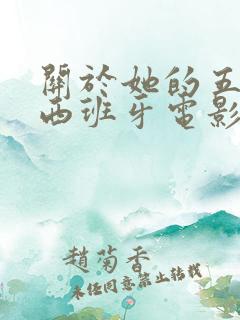 關於她的五
西班牙電影
趙菊香
未經同意禁止轉載